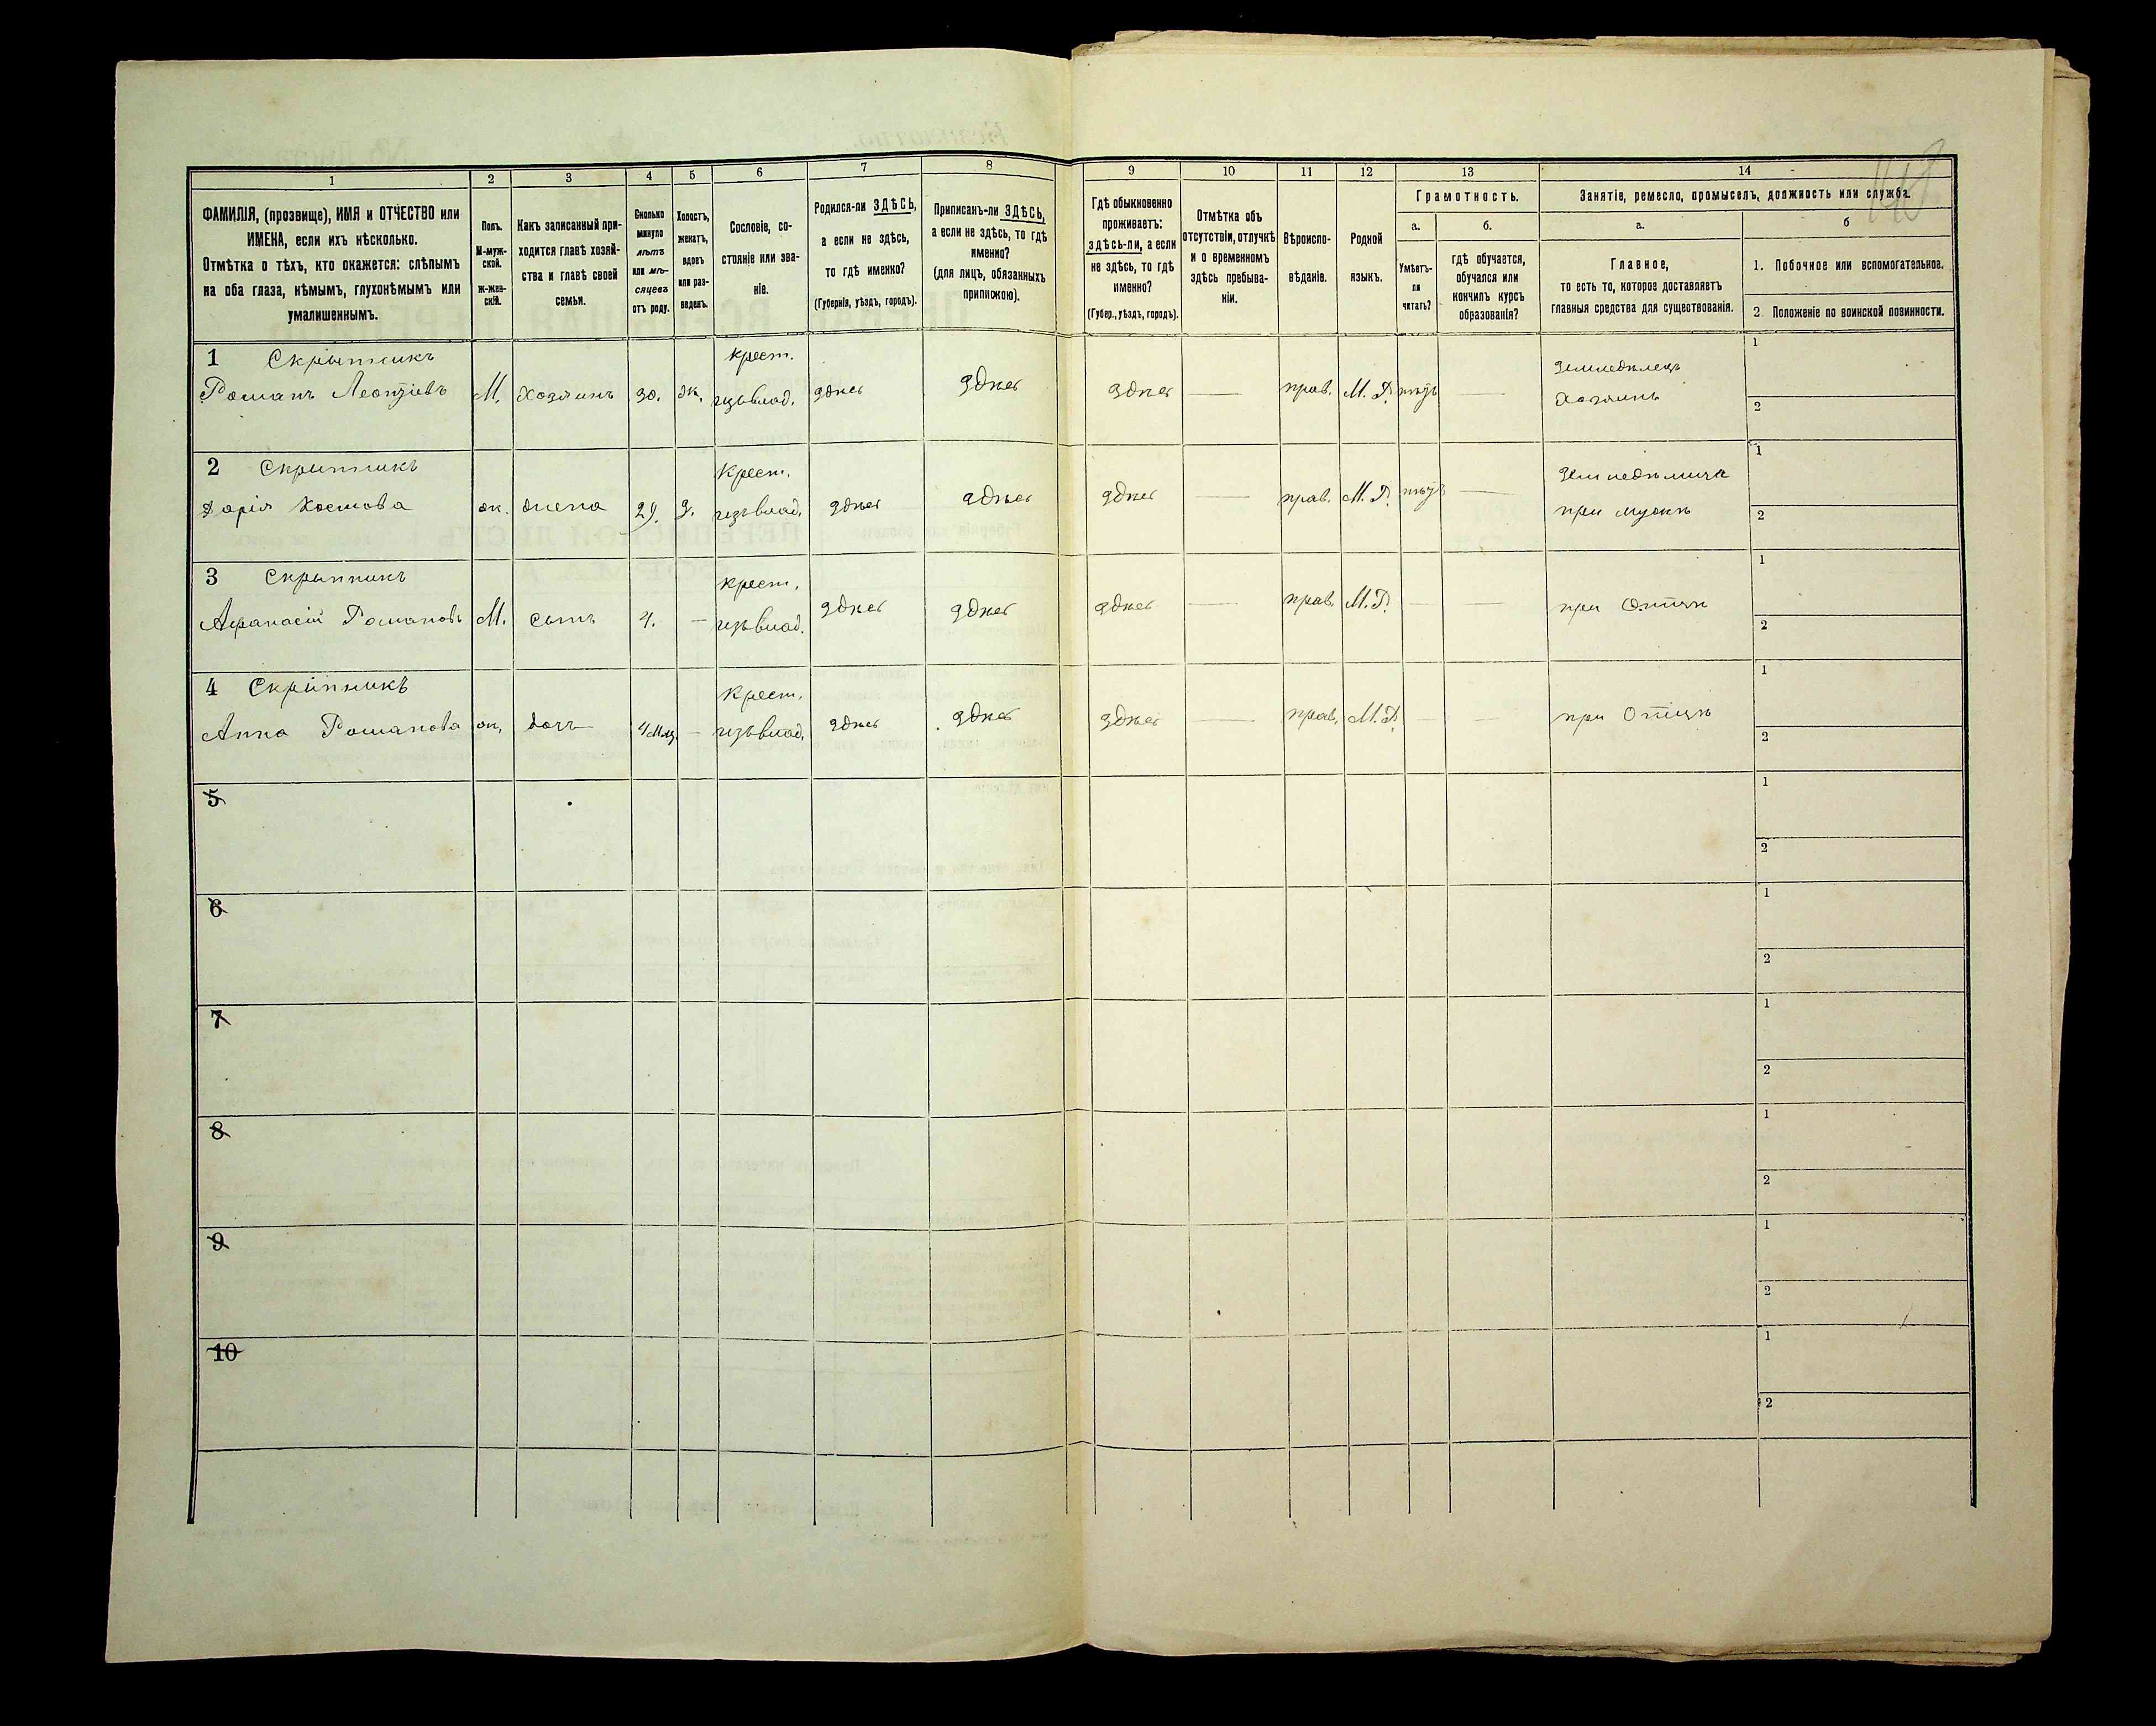 1 2 3 4 5 6 7 8 9 10 11 12 13 14
ФАМИЛІЯ, (прозвище), ИМЯ и ОТЧЕСТВО или
ИМЕНА, если ихъ нѣсколько.
Отмѣтка о тѣхъ, кто окажется: слѣпымъ
на оба глаза, нѣмымъ, глухонѣмымъ или
умалишеннымъ.
Полъ.
М-муж-
ской.
ж-жен-
скій.
Какъ записанный при-
ходится главѣ хозяй-
ства и главѣ своей
семьи.
Сколько
минуло
лѣтъ
или мѣ-
сяцевъ
отъ роду.
Холостъ,
женатъ,
вдовъ
или раз-
веденъ.
Сословіе, со-
стояніе или зва-
ніе.
Родился-ли ЗДѢСЬ,
а если не здѣсь,
то гдѣ именно?
(Губернія, уѣздъ, городъ).
Приписанъ-ли ЗДѢСЬ,
а если не здѣсь, то гдѣ
именно?
(для лицъ, обязанныхъ
припискою).
Гдѣ обыкновенно
проживаетъ:
здѣсь-ли, а если
не здѣсь, то гдѣ
именно?
(Губер., уѣздъ, городъ).
Отмѣтка объ
отсутствіи, отлучкѣ
и о временномъ
здѣсь пребыва-
ніи.
Вѣроиспо-
вѣданіе.
Родной
языкъ.
Грамотность.
а.
Умѣетъ-
ли
читать?
б.
гдѣ обучается,
обучался или
кончилъ курсъ
образованія?
Занятіе, ремесло, промыселъ, должность или служба.
а.
Главное,
то есть то, которое доставляетъ
главныя средства для существованія.
б
1. Побочное или вспомогательное.
2. Положеніе по воинской повинности.
1 Скрыпникъ крест. Земледѣлецъ 1
Романъ Леонтіевъ М. Хозяинъ 30. ж. изъ влад. здѣсь здѣсь здѣсь — прав. М. Р. нѣтъ — Хозяинъ 2
2 Скрыпникъ крест. 1
Дарія ж. жена 29. З. изъ влад. здѣсь здѣсь здѣсь — прав. М. Р. нѣтъ — при мужѣ 2
3 Скрыпникъ крест. 1
Афанасій Романовъ М. сынъ 4. — изъ влад. здѣсь здѣсь здѣсь — прав. М. Р. — — при Отцѣ 2
4 Скрыпникъ крест. 1
Анна Романова ж. дочь 4 мц. — изъ влад. здѣсь здѣсь здѣсь — прав. М. Р. — — при Отцѣ 2
5 1
2
6 1
2
7 1
2
8 1
2
9 1
2
10 1
2